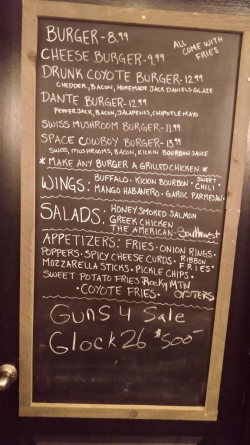 BURGER - 8.99
ALL COME WITH FRIES
CHEESE BURGER - 9.99
DRUNK COYOTE BURGER - 12.99
CHEDDER, BACON, HOMEMADE JACK DANIELS GLAZE
DANTE BURGER - 12.99
PEPPERJACK, BACON, JALAPENOS, CHIPOTLE MAYO
SWISS MUSHROOM BURGER - 11.99
SPACE COWBOY BURGER - 13.99
SWISS, MUSHROOMS, BACON, KICKIN BOURBON SAUCE
* MAKE ANY BURGER A GRILLED CHICKEN *
WINGS: BUFFALO · KICKIN BOURBON · SWEET CHILI ·
MANGO HABANERO · GARLIC PARMESAN
SALADS: HONEY SMOKED SALMON
GREEK CHICKEN
THE AMERICAN · Southwest
APPETIZERS: FRIES · ONION RINGS ·
POPPERS · SPICY CHEESE CURDS · RIBBON FRIES ·
MOZZARELLA STICKS · PICKLE CHIPS ·
SWEET POTATO FRIES · Rocky MTN OYSTERS
· COYOTE FRIES ·
GUNS 4 Sale
Glock 26 $500